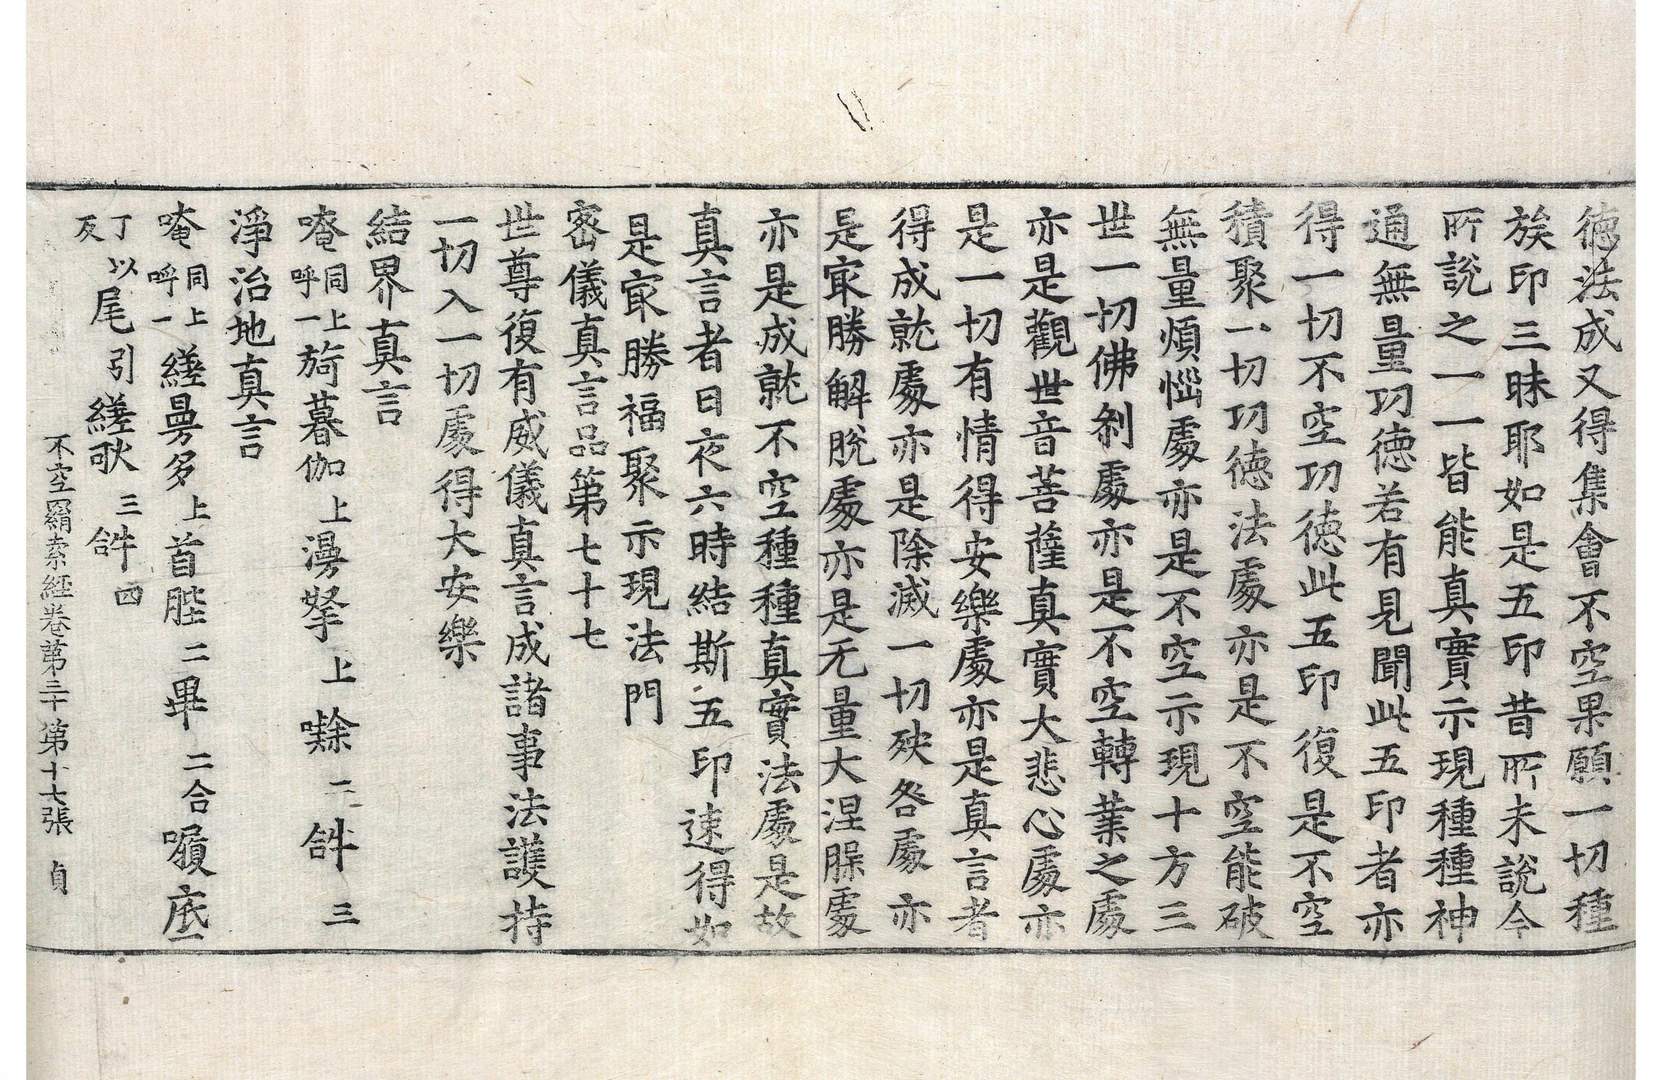 德法成又得集會不空果願一切種
族印三昧耶如是五印昔所未說今
所說之一一皆能真實示現種種神
通無量功德若有見聞此五印者亦
得一切不空功德此五印復是不空
積聚一切功德法處亦是不空能破
無量煩惱處亦是不空示現十方三
世一切佛剎處亦是不空轉業之處
亦是觀世音菩薩真實大悲心處亦
是一切有情得安樂處亦是真言者
得成就處亦是除滅一切殃咎處亦
是冣勝解脫處亦是无量大涅槃處
亦是成就不空種種真實法處是故
真言者日夜六時結斯五印速得如
是冣勝福聚示現法門
密儀真言品第七十七
世尊復有威儀真言成諸事法護持
一切入一切處得大安樂
結界真言
唵同上呼一旖暮伽上漫拏上𡄣二𤙖三
淨治地真言
唵同上呼一縒曼多上首腟二畢二合囇底
丁以反尾引縒𠰷三𤙖四
不空羂索經卷第三十 第十七張 貞